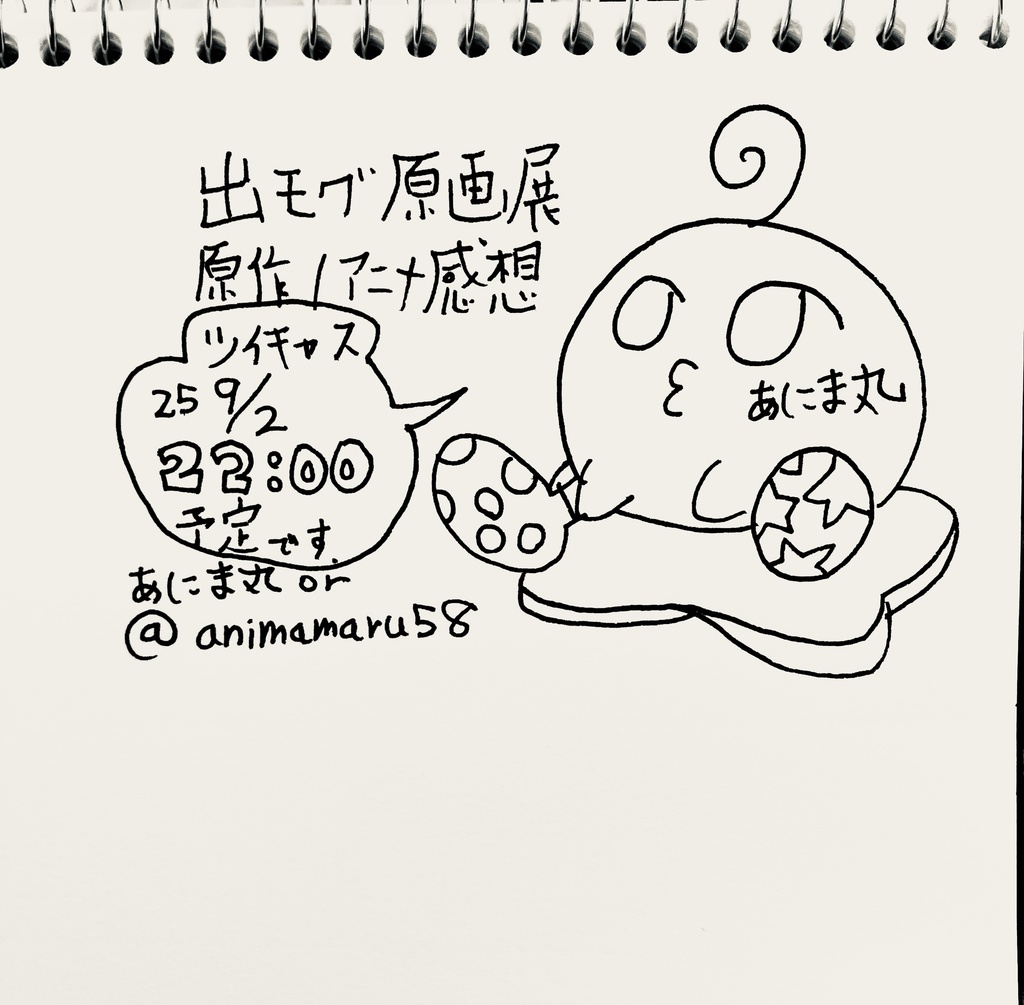 出モグ原画展
原作/アニメ感想
ツイキャス
25 9/2
22:00
予定です.
あにま丸 or
@animamaru58
あにま丸